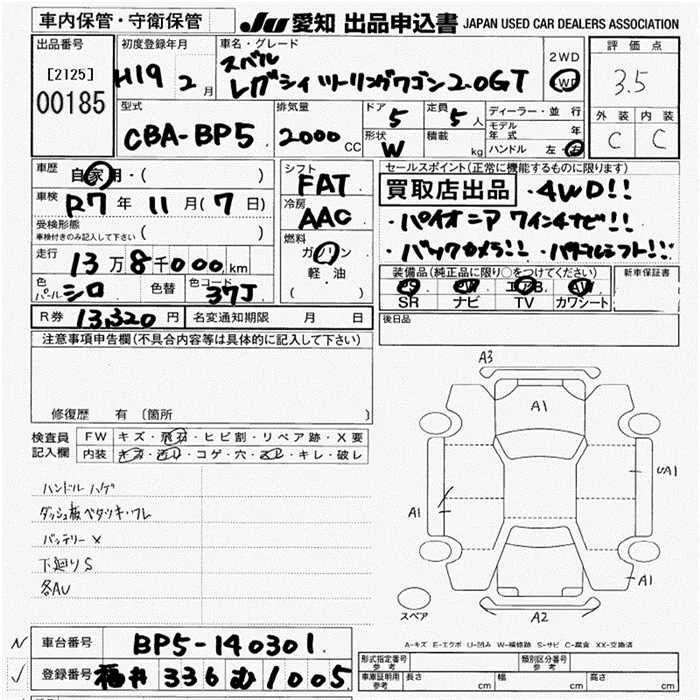 車内保管・守衛保管
JU 愛知 出品申込書 JAPAN USED CAR DEALERS ASSOCIATION
出品番号
[2125]
00185
初度登録年月
H19 2月
車名・グレード
スバル
レガシィ ツーリングワゴン 2.0GT
2WD
4WD
評価点
3.5
外装 内装
C C
型式
CBA-BP5
排気量
2000 CC
ドア
5
定員
5人
形状
W
積載
kg
ディーラー・並行
モデル年式 年
ハンドル 左・右
車歴
自家用・( )
車検
R7年 11月(7日)
受検形態
車検付きのみ記入して下さい ( )
走行
13万8千000km
色
パールシロ
色替
色コード
37J
シフト
FAT
冷房
AAC
燃料
ガソリン
軽油
( )
セールスポイント(正常に機能するものに限ります)
買取店出品 ・4WD!!
・パイオニア ワイン4ナビ!!
・バックカメラ!! ・パドルシフト!!
装備品(純正品に限り○をつけてください)
PS PW エアB AW
SR ナビ TV カワシート
新車保証書
後日品
R券 13,320円
名変通知期限 月 日
注意事項申告欄(不具合内容等は具体的に記入して下さい)
修復歴 有 [箇所 ]
検査員
記入欄
FW キズ・飛石・ヒビ割・リペア跡・X要
内装 キズ・汚レ・コゲ・穴・スレ・キレ・破レ
ハンドル ハゲ
ダッシュ板ベタツキ・ワレ
バッテリー×
下廻りS
各AU
A3
A1
A1
UA1
A1
A2
スペア
A-キズ E-エクボ U-凹み W-補修跡 S-サビ C-腐食 XX-交換済
N 車台番号 BP5-140301
✓ 登録番号 福井 336 む 1005
形式指定番号
参考
類別区分番号
参考
車庫証明用
参考
長さ cm 幅 cm 高さ cm